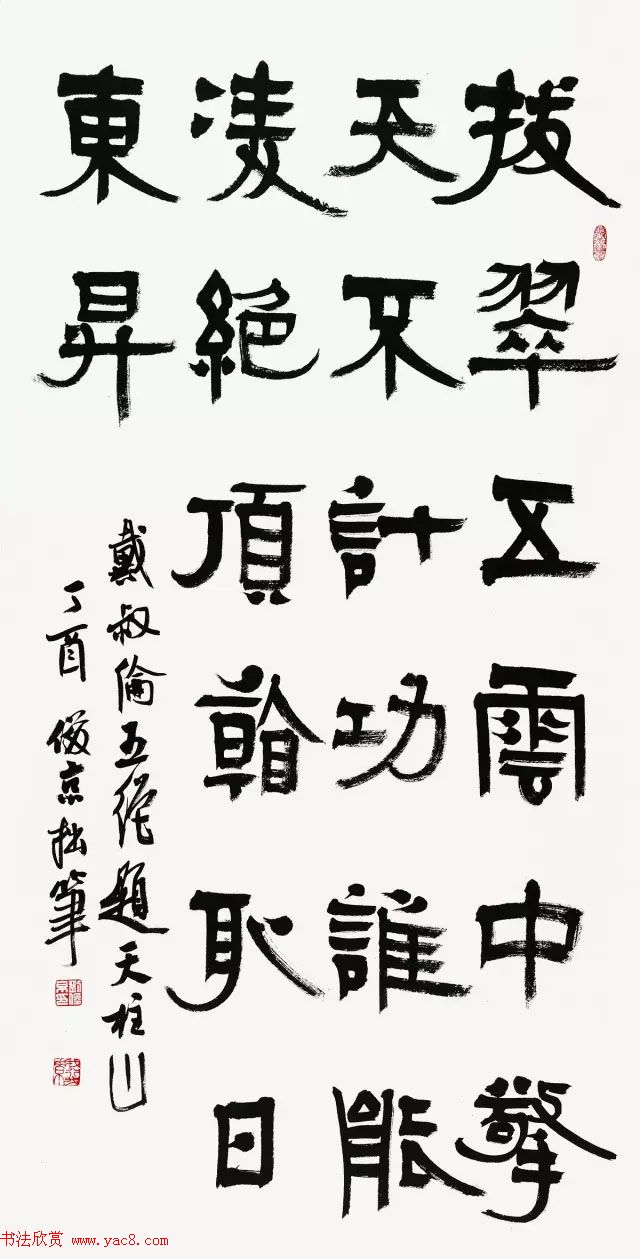 拔翠五雲中擎
天不計功誰能
凌絕頂看取日
東昇
戴叔倫五絕題天柱山
丁酉俊京拙筆
书法欣赏 www.yac8.com